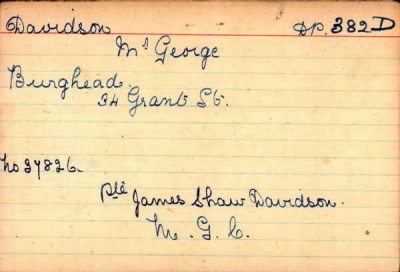 Davidson DP. 382 D
Mr George
Burghead.
34 Grant St.
No 37826.
Pte James Shaw Davidson.
M. G. C.